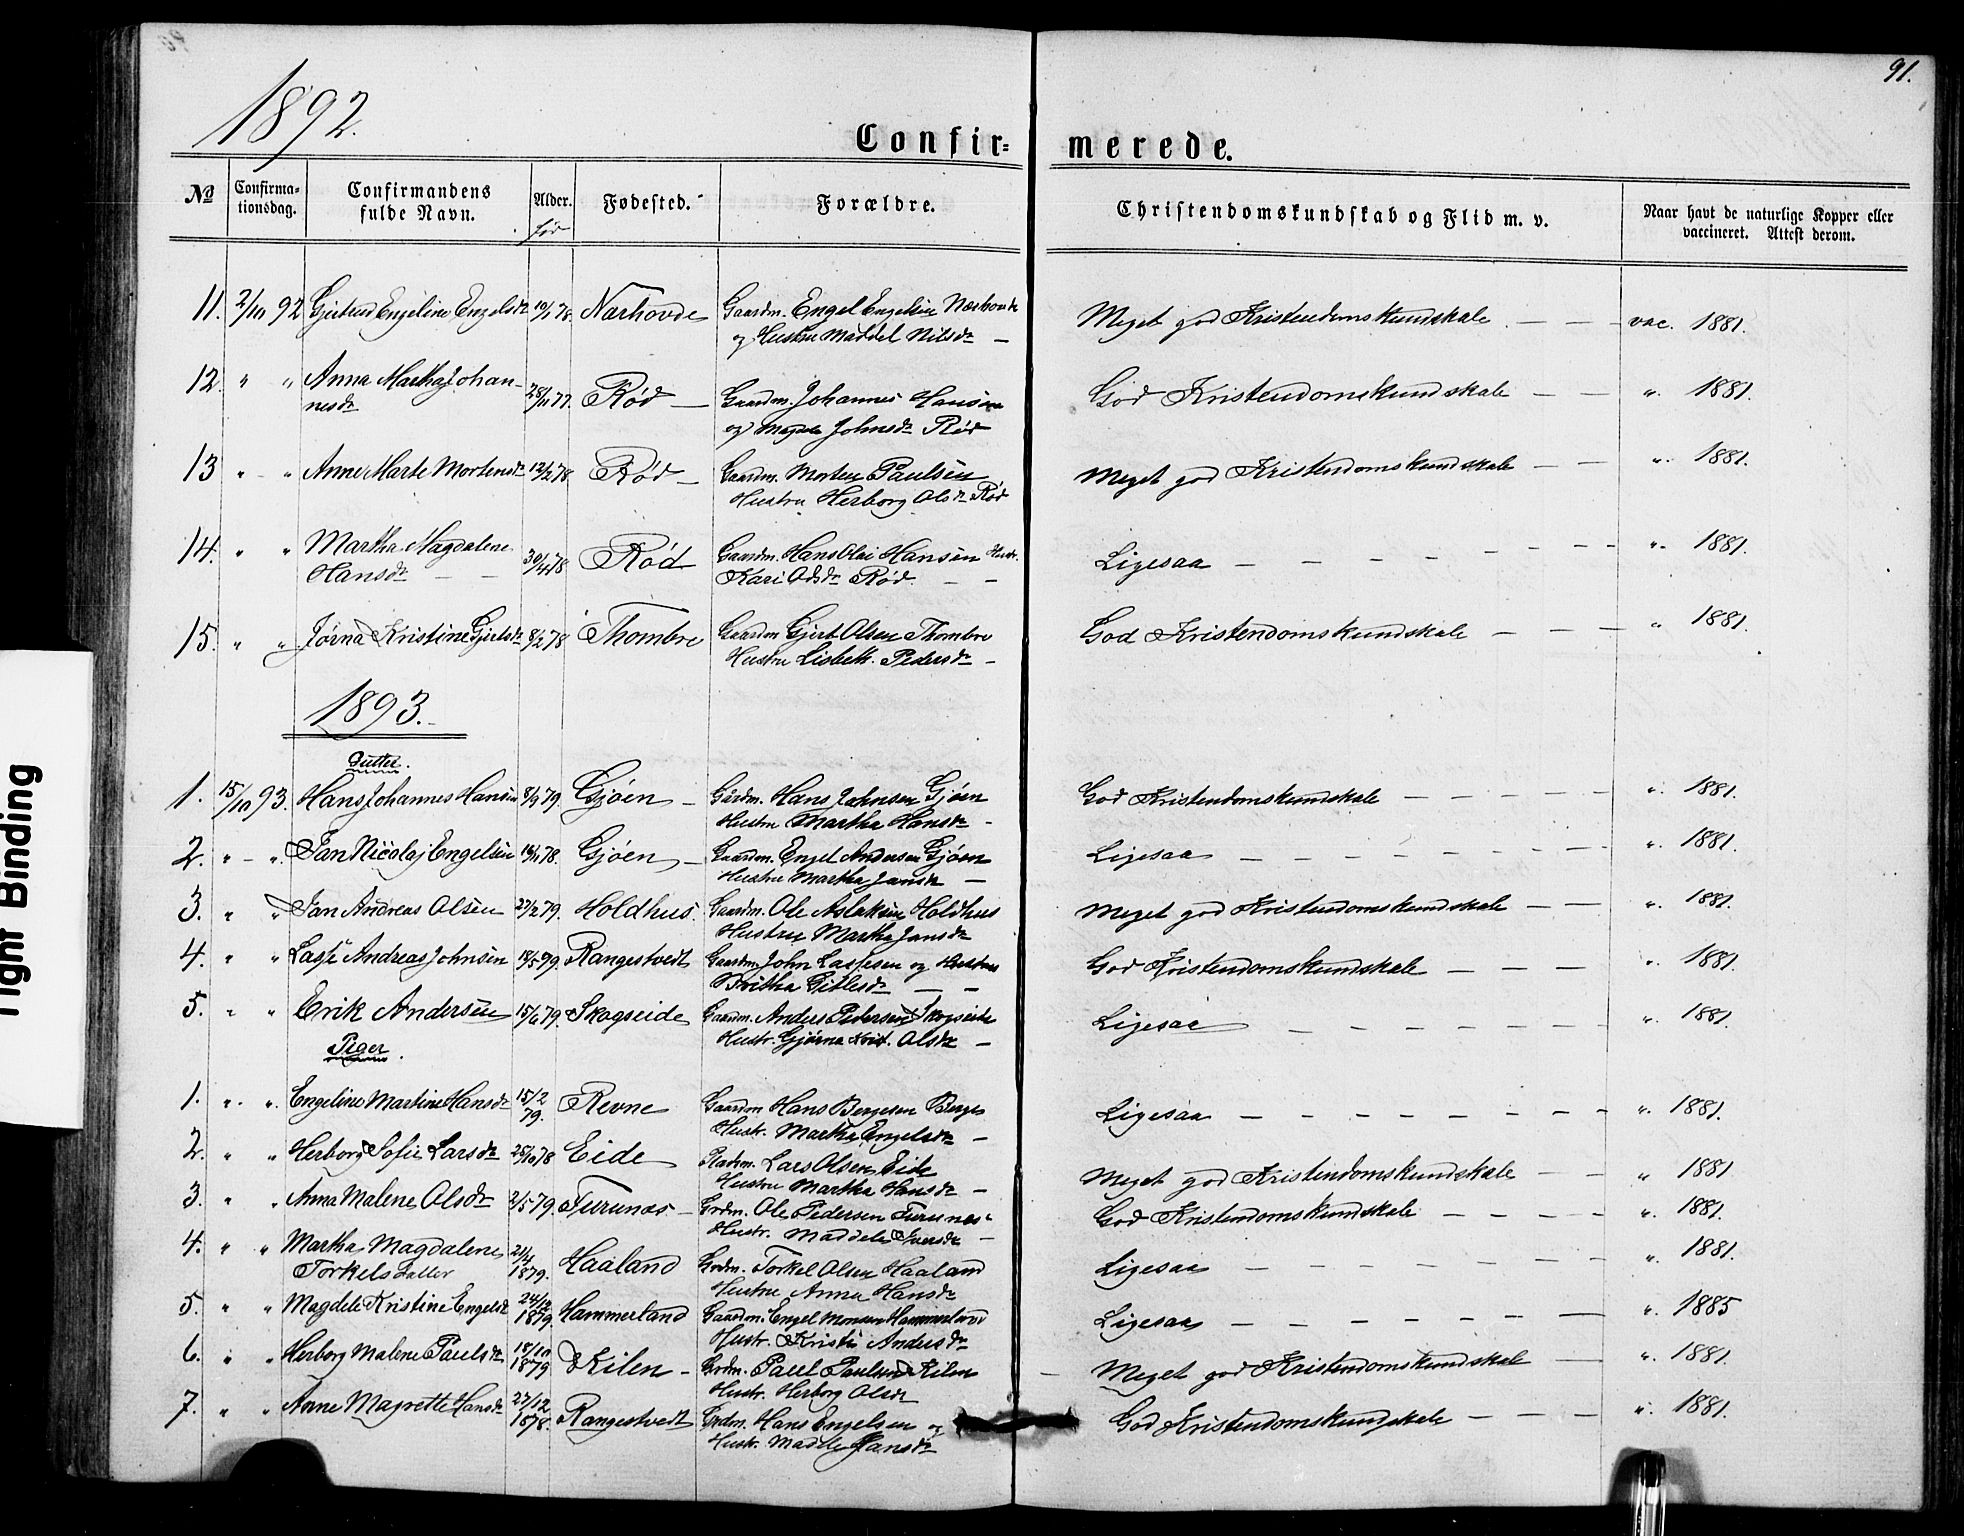 91.
1892.
Confirmerede.
No Confirmationsdag. Confirmandens fulde Navn. Alder. Fødested. Forældre. Christendomskundskab og Flid m. v. Naar havt de naturlige Kopper eller vaccineret. Attest derom.
fød
11. 2/10 92 Gjertrud Engeline Engelsdr 10/1 78. Nærhovde Gaardm. Engel Engelsen Nærhovde Meget god Kristendomskundskab. — — — vac. 1881.
og Hustru Maddel Nilsdr —
12. " " Anna Martha Johan- 28/11 77. Rød — Gaardm. Johannes Hansen God Kristendomskundskab — — ". 1881.
nesdr og Magdele Johnsdr Rød
13 " - " Anne Marte Mortensdr 12/2 78 Rød — Gaardm. Morten Paulsen Meget god Kristendomskundskab — — ". 1881.
Hustru Herborg Olsdr Rød
14. " " Martha Magdalene 30/4 78 Rød Gaardm. Hans Olai Hansen Hustr. Ligesaa — — — — — — — — ". 1881.
Hansdr — — Kari Olsdr Rød. — —
15. " " Jørna Kristine Gjertsdr 8/2 78 Thombre Gaardm Gjert Olsen Thombre God Kristendomskundskab — — — " 1881.
Hustru Lisbeth. Pedersdr —
1893.
Gutter.
1. 15/10 93. Hans Johannes Hansen 8/9 79. Gjøen — Gårdm. Hans Johnsen Gjøen God Kristendomskundskab — — — — — ". 1881.
Hustru Martha Hansdr —
2. " - ". Jan Nicolaj Engelsen 78. Gjøen — Gaardm. Engel Andersen Gjøen Ligesaa — — — — — — — — ". 1881.
Hustru Martha Jansdr —
3. " " Jan Andreas Olsen 27/2 79. Holdhus. Gaardm. Ole Aslaksen Holdhus Meget god Kristendomskundskab — — ". 1881.
Hustru Martha Jansdr
4. " " Lasse Andreas Johnsen 18/5 79. Rangestvedt Gaardm. John Lassesen og Hustru God Kristendomskundskab — — — ". 1881.
Britha Gitlesdr — —
5. " " Erik Andersen 15/6 79. Skogseide Gaardm. Anders Pedersen Skogseide Ligesaa — — — — — — — ". 1881.
Hustr. Gjørna Krist. Olsdr —
Piger.
1. ". ". Engeline Martine Hansdr 15/2 79. Revne Gaardm Hans Bergesen Berge Ligesaa — — — — — — — — — ". 1881.
Hustr. Martha Engelsdr —
2. " " Herborg Sofie Larsdr 25/10 78 Eide Pladsm. Lars Olsen Eide Meget god Kristendomskundskab — — " 1881
Hustru Martha Hansdr —
3. " " Anna Malene Olsdr 2/5 79. Furunæs — Grdm. Ole Pedersen Furunæs God Kristendomskundskab — — — — ". 1881.
Hustr. Maddele Iversdr —
4. " " Martha Magdalene 21/4 1879. Haaland Grdm. Torkel Olsen Haaland Ligesaa — — — — — — — — ". 1881.
Torkelsdatter Hustru Anna Hansdr
5. " " Magdele Kristine Engelsdr 24/12 1879 Hammerland Gaardm. Engel Monsen Hammerland Ligesaa — — — — — — — — ". 1885
Hustr. Kristi Andersdr
6. " " Herborg Malene Paulsdr 18/10 1879 Kilen — Grdm. Paul Paulsen Kilen — Meget god Kristendomskundskab — ". 1881.
Hustr. Herborg Olsdr
7. " " Anne Magrette Hansdr 27/12 1878. Rangestvedt Grdm. Hans Engelsen og God Kristendomskundskab — — — ". 1881.
Hustr. Maddele Jansdr
Tight Binding